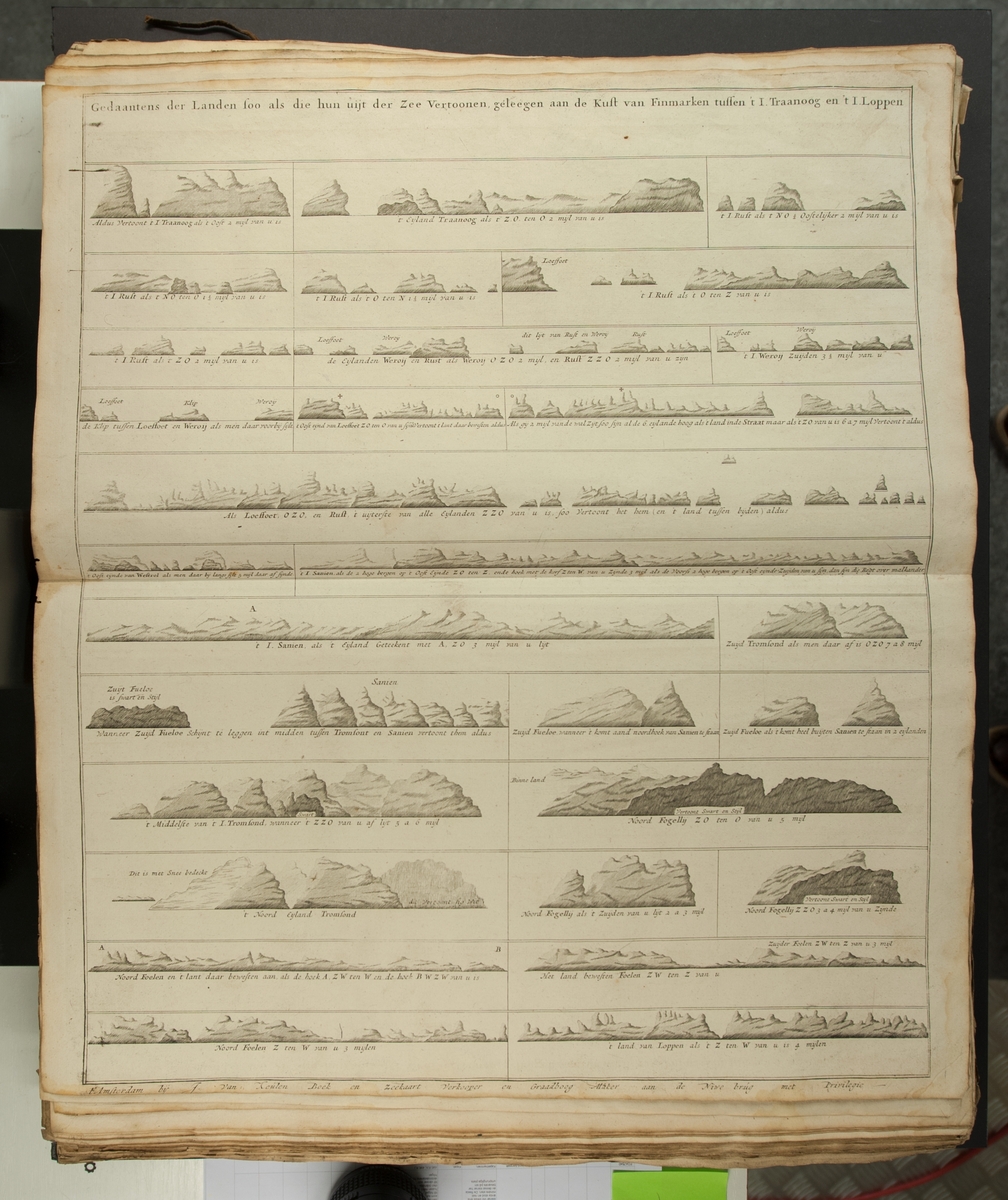 Gedaantens der Landen soo als die hun uijt der Zee Vertoonen, geleegen aan de Kust van Finmarken tussen t I. Traanoog en 't I. Loppen
Aldus Vertoont t I Traanoog als t Oost 2 mijl van u is
t Eyland Traanoog als t' Z O. ten O 2 mijl van u is
t I Rust als t N O ½ Oostelijker 2 mijl van u is
t I Rust als t N O ten O 1½ mijl van u is
t I Rust als t O ten N 1½ mijl van u is
Loeffoet
't I Rust als t O ten Z van u is
t I Rust als t Z O. 2 mijl van u is
Loeffoet
Weroij
de Eylanden Weroij en Rust als Weroij O Z O 2 mijl, en Rust Z Z O 2 mijl van u zijn
dit lijt van Rust en Weroij
Rust
Loeffoet
Weroij
't I Weroij Zuijden 3½ mijl van u
Loeffoet
Klip
Weroij
de Klip tussen Loeffoet en Weroij als men daar voorby
t Oost eijnd van Loeffoet Z O ten O van u Vertoont t lant daar aldus
Als gy 2 mijl vande wal Zyt soo sijn al de eylande hoog als t land inde Straat maar als t Z O van u is 6 a 7 mijl Vertoont t aldus
Als Loeffoet, O Z O, en Rust t uijterste van alle Eylanden Z Z O van u is, soo Vertoont het hem (en t land tussen bijden) aldus
t Oost eijnde van als men daar by langs 3 mijl daar af
t I Sanien als de 2 hoge bergen op t Oost Eijnde Z O ten Z ende hoek Z ten W van u Zijnde 3 mijl als de 2 hoge bergen op t Oost eijnde Zuijden van u sijn, dan sijn die Regt over malkander
A
t I. Sanien, als t Eyland Geteekent met A, Z O 3 mijl van u lijt
Zuijd Tromsond als men daar af is O Z O 7 a 8 mijl
Zuijt Fueloe
is swart en Stijl
Sanien
Wanneer Zuijd Fueloe Schijnt te leggen int midden tussen Tromsont en Sanien vertoont them aldus
Zuijd Fueloe wanneer t komt aand noordhoek van Sanien te staan
Zuijd Fueloe als t komt heel buijten Sanien te staan in 2 eylonden
t Middelste van t I Tromsond, wanneer t Z Z O van u af lijt 5 a 6 mijl
Binne land
Vertoont Swart en Stijl
Noord Fogellij Z O ten O van u 5 mijl
Dit is met Snee bedeckt
't Noord Eyland Tromsond
Noord Fogellij als t Zuijden van u lijt 2 a 3 mijl
Vertoont Swart en Stijl
Noord Fogellij Z Z O 3 a 4 mijl van u Zijnde
A
B
Noord Foelen en t lant daar bewesten aan, als de hoek A. Z W ten W en de hoek B W Z W van u is
Zuyder Foelen Z W ten Z van u 3 mijl
Het land bewesten Foelen Z W ten Z van u
Noord Foelen Z ten W van u 3 mijlen
't land van Loppen als t' Z ten W van u is 4 mijlen
t' Amsterdam bij J. Van Keulen Boek en Zeekaart Verkooper en Graadboog Maker aan de Nuwe brug met Privilegie